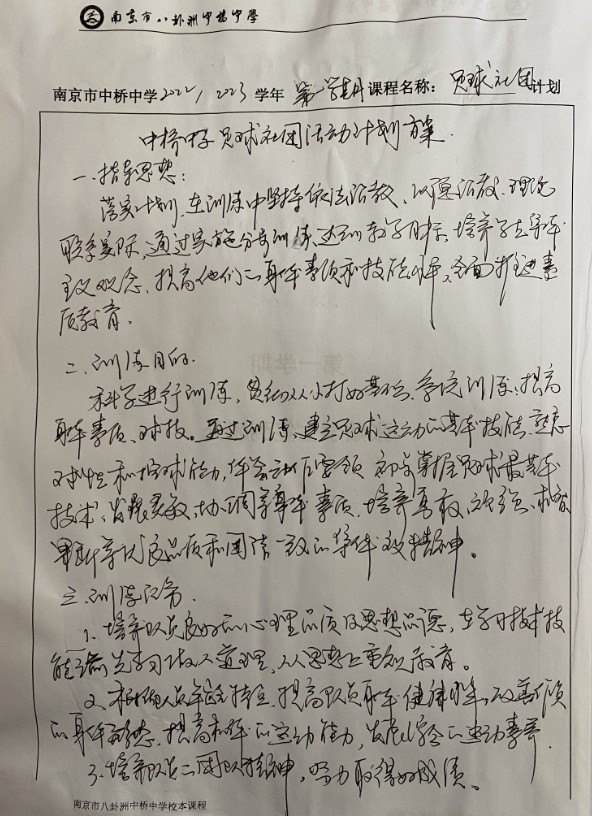 南京市八卦洲中桥中学
南京市中桥中学2022/2023学年 第一学期课程名称：足球社团计划
中桥中学足球社团活动计划方案.
一.指导思想：
落实计划，在训练中坚持依法治教、以德治教、理论
联系实际，通过实施分类训练，达到教学目标，培养学生集体
主义观念，提高他们的身体素质和技能水平，全面推进素
质教育.
二.训练目的.
科学进行训练，贯彻从小打好基础，系统训练，提高
身体素质、球技。通过训练，建立足球运动的基本技能，熟悉
球性和控球能力，体会动作要领，初步掌握足球最基本
技术，发展灵敏、协调等身体素质，培养勇敢、顽强、机智、
果断等优良品质和团结一致的集体主义精神。
三.训练任务.
1.培养队员良好的心理品质及思想品德，在学习技术技
能之前先学习做人道理，从思想上重视教育。
2.根据队员年龄特征，提高队员身体健康水平，改善不良
的身体形态，提高身体的运动能力，发展全面的运动素养.
3.培养队员的团队精神，努力取得好成绩。
南京市八卦洲中桥中学校本课程